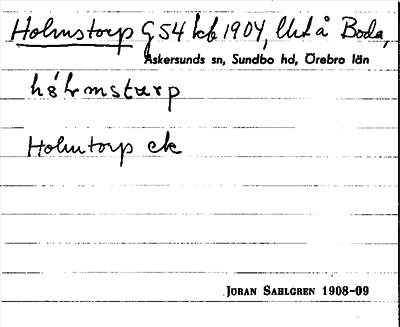 Holmstorp G 54 kb 1904, litå Boda,
Askersunds sn, Sundbo hd, Örebro län
Holmtorp ek
Jöran Sahlgren 1908-09